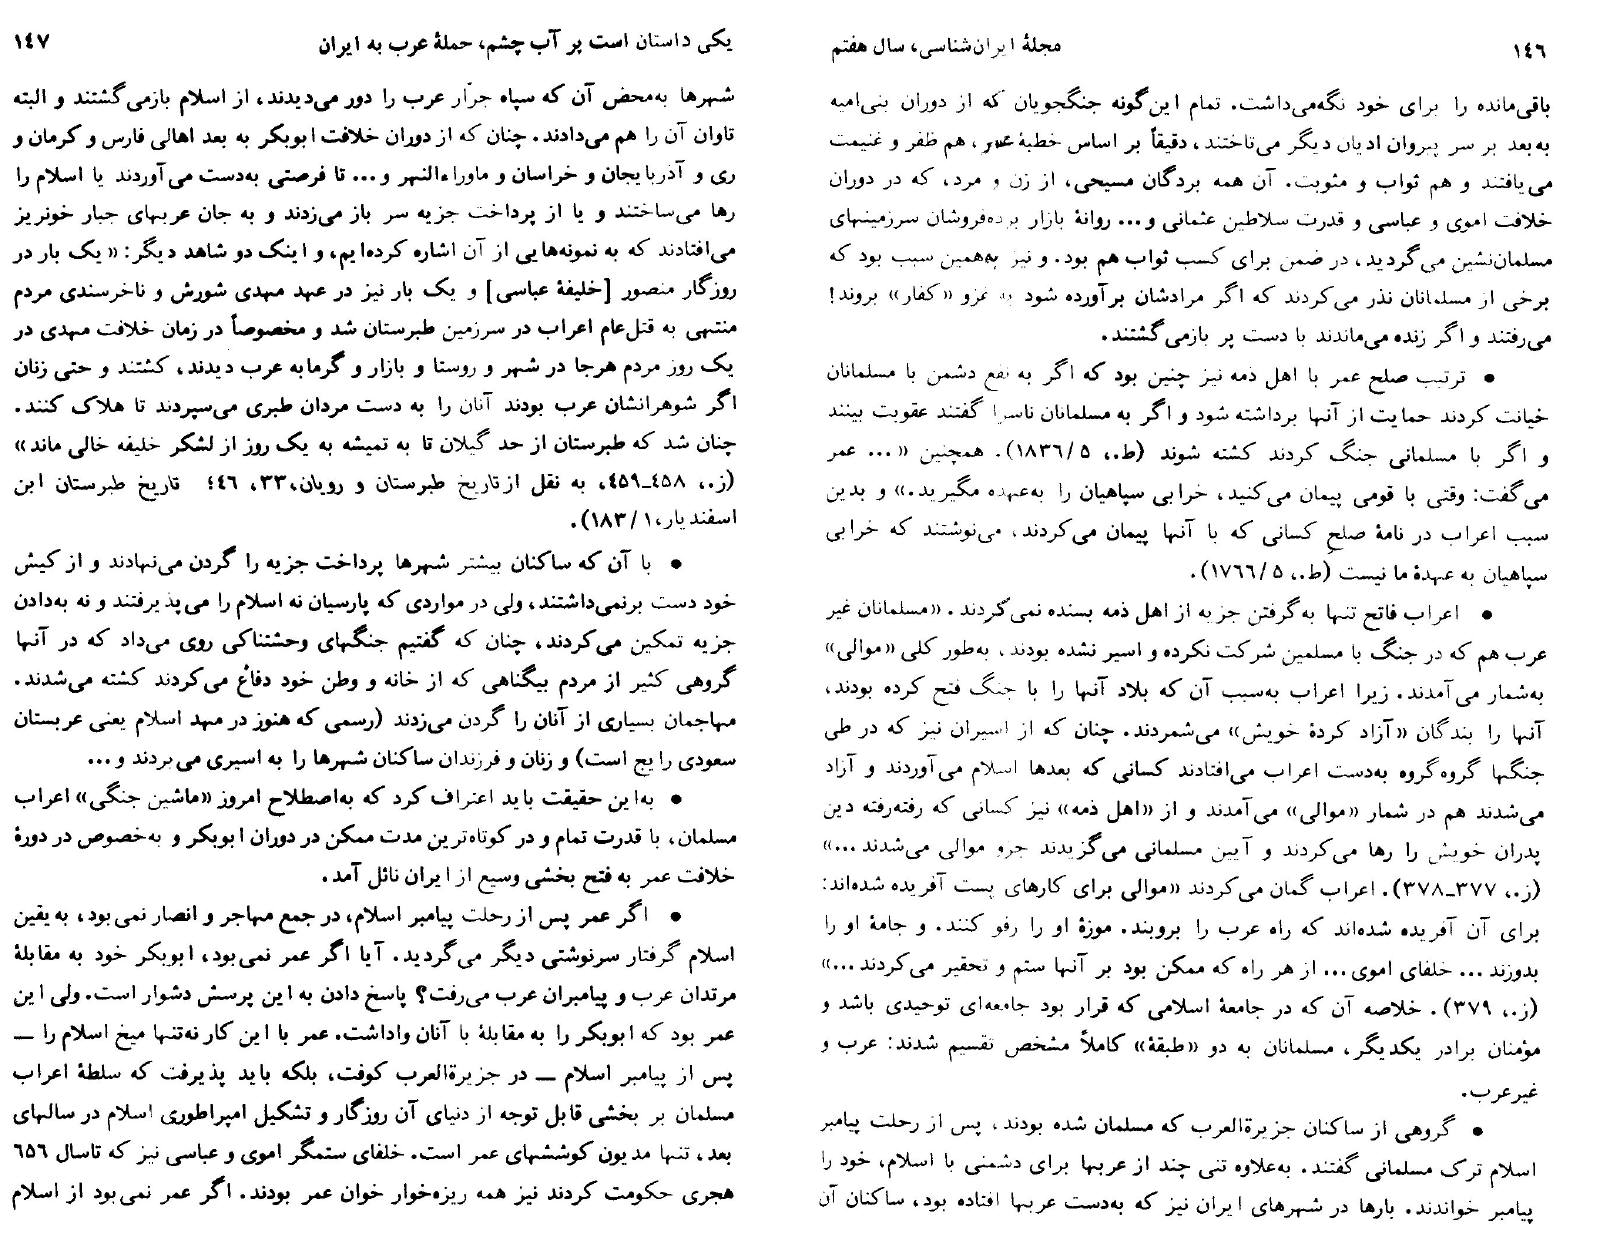 ١٤٦
مجلهٔ ایران‌شناسی، سال هفتم
باقی‌مانده را برای خود نگه‌می‌داشت. تمام این‌گونه جنگجویان که از دوران بنی‌امیه
به‌بعد بر سر پیروان ادیان دیگر می‌تاختند، دقیقاً بر اساس خطبهٔ عمر، هم ظفر و غنیمت
می‌یافتند و هم ثواب و مثوبت. آن همه بردگان مسیحی، از زن و مرد، که در دوران
خلافت اموی و عباسی و قدرت سلاطین عثمانی و... روانهٔ بازار برده‌فروشان سرزمینهای
مسلمان‌نشین می‌گردید، در ضمن برای کسب ثواب هم بود. و نیز به‌همین سبب بود که
برخی از مسلمانان نذر می‌کردند که اگر مرادشان برآورده شود به غزو «کفار» بروند!
می‌رفتند و اگر زنده می‌ماندند با دست پر بازمی‌گشتند.
● ترتیب صلح عمر با اهل ذمه نیز چنین بود که اگر به نفع دشمن با مسلمانان
خیانت کردند حمایت از آنها برداشته شود و اگر به مسلمانان ناسزا گفتند عقوبت بینند
و اگر با مسلمانی جنگ کردند کشته شوند (ط.، ١٨٣٦/٥). همچنین «... عمر
می‌گفت: وقتی با قومی پیمان می‌کنید، خرابی سپاهیان را به‌عهده مگیرید.» و بدین
سبب اعراب در نامهٔ صلح کسانی که با آنها پیمان می‌کردند، می‌نوشتند که خرابی
سپاهیان به عهدهٔ ما نیست (ط.، ١٧٦٦/٥).
● اعراب فاتح تنها به‌گرفتن جزیه از اهل ذمه بسنده نمی‌کردند. «مسلمانان غیر
عرب هم که در جنگ با مسلمین شرکت نکرده و اسیر نشده بودند، به‌طور کلی «موالی»
به‌شمار می‌آمدند. زیرا اعراب به‌سبب آن که بلاد آنها را با جنگ فتح کرده بودند،
آنها را بندگان «آزاد کردهٔ خویش» می‌شمردند. چنان که از اسیران نیز که در طی
جنگها گروه‌گروه به‌دست اعراب می‌افتادند کسانی که بعدها اسلام می‌آوردند و آزاد
می‌شدند هم در شمار «موالی» می‌آمدند و از «اهل ذمه» نیز کسانی که رفته‌رفته دین
پدران خویش را رها می‌کردند و آیین مسلمانی می‌گزیدند جزو موالی می‌شدند ...»
(ز.، ٣٧٧_٣٧٨). اعراب گمان می‌کردند «موالی برای کارهای پست آفریده شده‌اند:
برای آن آفریده شده‌اند که راه عرب را بروبند. موزهٔ او را رفو کنند. و جامهٔ او را
بدوزند ... خلفای اموی... از هر راه که ممکن بود بر آنها ستم و تحقیر می‌کردند ...»
(ز.، ٣٧٩). خلاصه آن که در جامعهٔ اسلامی که قرار بود جامعه‌ای توحیدی باشد و
مؤمنان برادر یکدیگر، مسلمانان به دو «طبقهٔ» کاملاً مشخص تقسیم شدند: عرب و
غیرعرب.
● گروهی از ساکنان جزیرةالعرب که مسلمان شده بودند، پس از رحلت پیامبر
اسلام ترک مسلمانی گفتند. به‌علاوه تنی چند از عربها برای دشمنی با اسلام، خود را
پیامبر خواندند. بارها در شهرهای ایران نیز که به‌دست عربها افتاده بود، ساکنان آن
یکی داستان است پر آب چشم، حملهٔ عرب به ایران
١٤٧
شهرها به‌محض آن که سپاه جرّار عرب را دور می‌دیدند، از اسلام بازمی‌گشتند و البته
تاوان آن را هم می‌دادند. چنان که از دوران خلافت ابوبکر به بعد اهالی فارس و کرمان و
ری و آذربایجان و خراسان و ماوراءالنهر و... تا فرصتی به‌دست می‌آوردند یا اسلام را
رها می‌ساختند و یا از پرداخت جزیه سر باز می‌زدند و به جان عربهای جبار خونریز
می‌افتادند که به نمونه‌هایی از آن اشاره کرده‌ایم، و اینک دو شاهد دیگر: «یک بار در
روزگار منصور [خلیفهٔ عباسی] و یک بار نیز در عهد مهدی شورش و ناخرسندی مردم
منتهی به قتل‌عام اعراب در سرزمین طبرستان شد و مخصوصاً در زمان خلافت مهدی در
یک روز مردم هرجا در شهر و روستا و بازار و گرمابه عرب دیدند، کشتند و حتی زنان
اگر شوهرانشان عرب بودند آنان را به دست مردان طبری می‌سپردند تا هلاک کنند.
چنان شد که طبرستان از حد گیلان تا به تمیشه به یک روز از لشکر خلیفه خالی ماند»
(ز.، ٤٥٨_٤٥٩، به نقل از تاریخ طبرستان و رویان، ٣٣، ٤٦؛ تاریخ طبرستان ابن
اسفندیار، ١٨٣/١).
● با آن که ساکنان بیشتر شهرها پرداخت جزیه را گردن می‌نهادند و از کیش
خود دست برنمی‌داشتند، ولی در مواردی که پارسیان نه اسلام را می‌پذیرفتند و نه به‌دادن
جزیه تمکین می‌کردند، چنان که گفتیم جنگهای وحشتناکی روی می‌داد که در آنها
گروهی کثیر از مردم بیگناهی که از خانه و وطن خود دفاع می‌کردند کشته می‌شدند.
مهاجمان بسیاری از آنان را گردن می‌زدند (رسمی که هنوز در مهد اسلام یعنی عربستان
سعودی رایج است) و زنان و فرزندان ساکنان شهرها را به اسیری می‌بردند و...
● به‌این حقیقت باید اعتراف کرد که به‌اصطلاح امروز «ماشین جنگی» اعراب
مسلمان، با قدرت تمام و در کوتاه‌ترین مدت ممکن در دوران ابوبکر و به‌خصوص در دورهٔ
خلافت عمر به فتح بخشی وسیع از ایران نائل آمد.
● اگر عمر پس از رحلت پیامبر اسلام، در جمع مهاجر و انصار نمی‌بود، به‌یقین
اسلام گرفتار سرنوشتی دیگر می‌گردید. آیا اگر عمر نمی‌بود، ابوبکر خود به مقابلهٔ
مرتدان عرب و پیامبران عرب می‌رفت؟ پاسخ دادن به این پرسش دشوار است. ولی این
عمر بود که ابوبکر را به مقابلهٔ با آنان واداشت. عمر با این کار نه‌تنها میخ اسلام را —
پس از پیامبر اسلام — در جزیرةالعرب کوفت، بلکه باید پذیرفت که سلطهٔ اعراب
مسلمان بر بخشی قابل توجه از دنیای آن روزگار و تشکیل امپراطوری اسلام در سالهای
بعد، تنها مدیون کوششهای عمر است. خلفای ستمگر اموی و عباسی نیز که تاسال ٦٥٦
هجری حکومت کردند نیز همه ریزه‌خوار خوان عمر بودند. اگر عمر نمی‌بود از اسلام